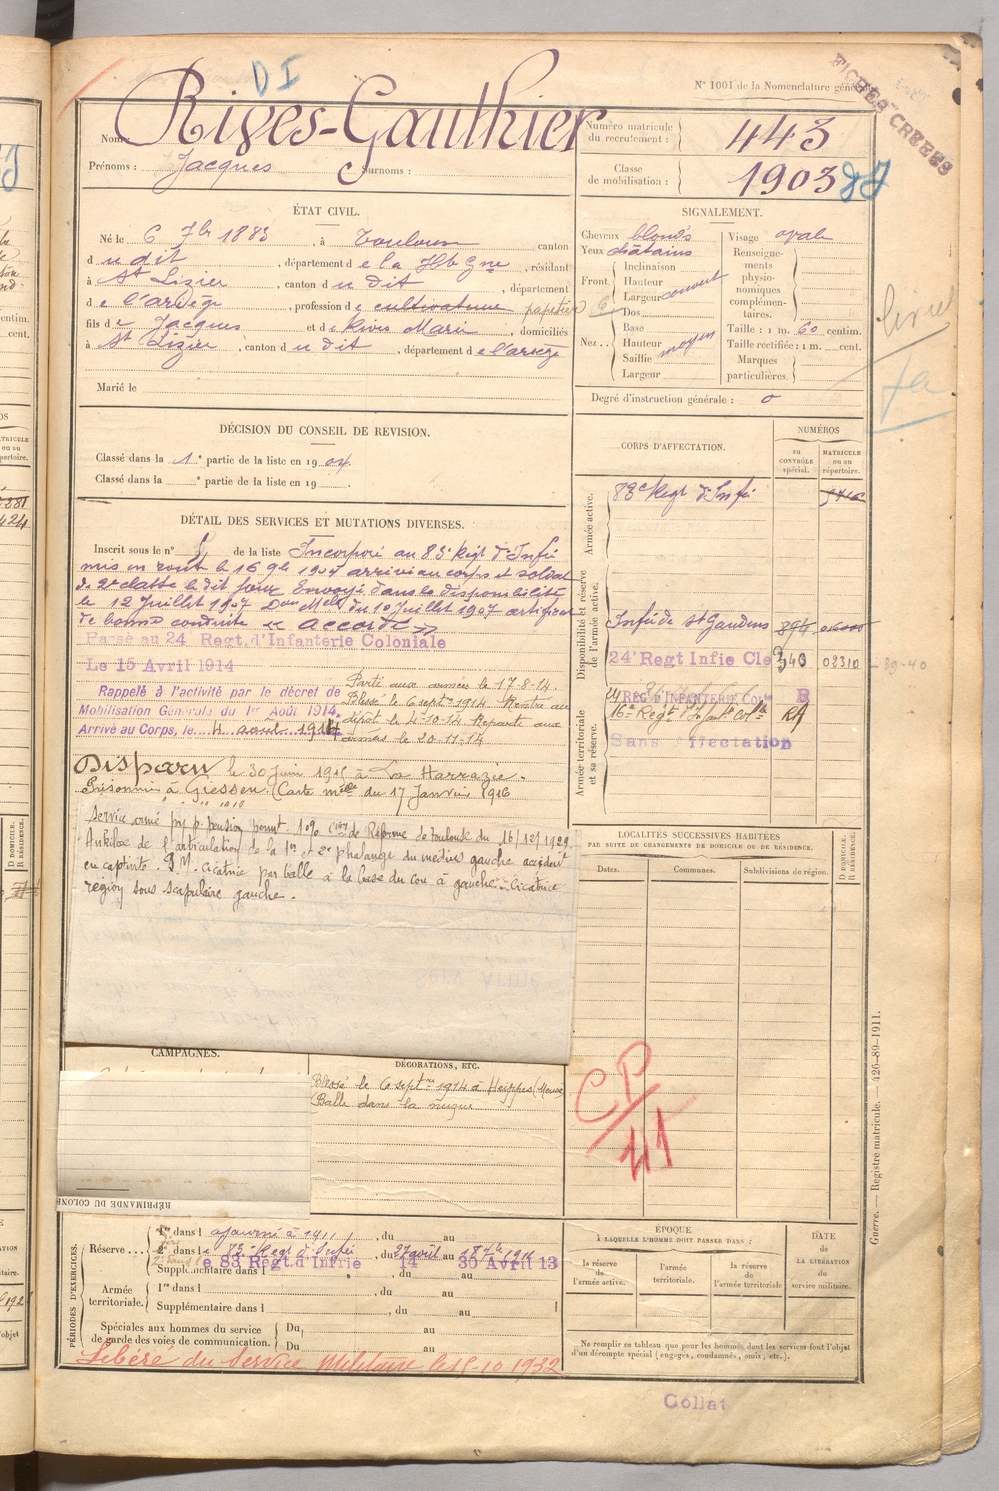 DI
N° 1001 de la Nomenclature géné
FICHES CREEES
Nom Rives-Gauthier
Prénoms : Jacques Surnoms :
Numéro matricule du recrutement : 443
Classe de mobilisation : 1903
ÉTAT CIVIL.
Né le 6 7bre 1883, à Toulouse canton
du dit, département de la Hte Gne, résidant
à St Lizier, canton du dit, département
de l'ariège, profession de cultivateur papetier
fils de Jacques et de Rives Marie, domiciliés
à St Lizier, canton du dit, département de l'ariège
Marié le
SIGNALEMENT.
Cheveux blonds Visage ovale
Yeux châtains
Front : Inclinaison Hauteur Largeur couvert
Nez : Dos Base Hauteur Saillie Largeur moyen
Renseignements physionomiques complémentaires.
Taille : 1 m. 60 centim.
Taille rectifiée : 1 m. cent.
Marques particulières.
Degré d'instruction générale : 0
DÉCISION DU CONSEIL DE REVISION.
Classé dans la 1e partie de la liste en 1904.
Classé dans la e partie de la liste en 19 .
DÉTAIL DES SERVICES ET MUTATIONS DIVERSES.
Inscrit sous le n° de la liste Incorporé au 83e Régt d'Infie
mis en route le 16 9bre 1904 arrivé au corps et soldat
de 2e classe le dit jour Envoyé dans la disponibilité
le 12 Juillet 1907 du 10 Juillet 1907 certificat
de bonne conduite « Accordé »
Passé au 24 Regt. d'Infanterie Coloniale
Le 15 Avril 1914
Rappelé à l'activité par le décret de
Mobilisation Générale du 1er Août 1914.
Arrivé au Corps, le 4 août 1914
Parti aux armées le 17-8-14.
Blessé le 6 septre 1914 Rentré au
dépôt le 4-10-14 Reparti aux
armées le 20-11-14
Disparu le 30 Juin 1915 à La Harrazie.
Prisonnier à Giessen (Carte du 17 Janvier 1916
Service armé pr p. pension permt. 10% Con de Réforme de Toulouse du 16/12/1929.
Ankilose de l'articulation de la 1re et 2e phalange du médius gauche accident
en captivité. P.M. cicatrice par balle à la base du cou à gauche. Cicatrice
région sous scapulaire gauche.
CORPS D'AFFECTATION.
NUMÉROS
au CONTRÔLE spécial.
MATRICULE ou au répertoire.
Armée active.
83e Régt d'Infie
Disponibilité et réserve de l'armée active.
Infie de St Gaudens 894
24e Regt Infie Cle 340 02310 - 39-40
Armée territoriale et sa réserve.
24 REG. D'INFANTERIE COLle B
16e Régt d'Infantie Colle
Sans Affectation
LOCALITÉS SUCCESSIVES HABITÉES
PAR SUITE DE CHANGEMENTS DE DOMICILE OU DE RÉSIDENCE.
Dates. Communes. Subdivisions de région. D DOMICILE. R RÉSIDENCE.
CAMPAGNES.
DÉCORATIONS, ETC.
Blessé le 6 septre 1914 à Heippes (Meuse
Balle dans la nuque
CP/41
RÉPRIMANDE DU COLONE
PÉRIODES D'EXERCICES.
Réserve... 1re dans l ajourné à 1911, du au
2e dans le 83e Régt d'Infie, du 27 août au
e 83 Regt. d'Infrie 14 30 Avril 13
Supplémentaire dans l , du au
Armée territoriale. 1re dans l , du au
Supplémentaire dans l , du au
Spéciales aux hommes du service de garde des voies de communication. Du au
Du au
Libéré du Service Militaire le 15-10-1932
ÉPOQUE
À LAQUELLE L'HOMME DOIT PASSER DANS :
la réserve de l'armée active.
l'armée territoriale.
la réserve de l'armée territoriale
DATE de LA LIBÉRATION du service militaire.
Ne remplir ce tableau que pour les hommes dont les services font l'objet
d'un décompte spécial (engagés, condamnés, omis, etc.).
Guerre. — Registre matricule. — 426-89-1911.
Collat